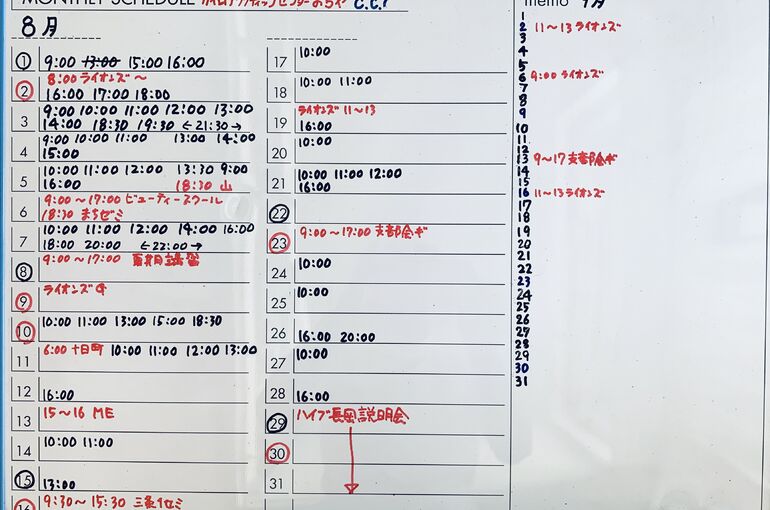 MONTHLY SCHEDULE カイロプラクティックセンターおぢや C.C.O
8月
1 9:00 13:00 15:00 16:00
2 8:00 ライオンズ〜
16:00 17:00 18:00
3 9:00 10:00 11:00 12:00 13:00
14:00 18:30 19:30 ←21:30→
4 9:00 10:00 11:00 13:00 14:00
15:00
5 10:00 11:00 12:00 13:30 9:00
16:00 18:30 山
6 9:00〜17:00 ビューティースクール
18:30 まちゼミ
7 10:00 11:00 12:00 14:00 16:00
18:00 20:00 ←22:00→
8 9:00〜17:00 夏期講習
9 ライオンズ
10 10:00 11:00 13:00 15:00 18:30
11 6:00 十日町 10:00 11:00 12:00 13:00
12 16:00
13 15〜16 ME
14 10:00 11:00
15 13:00
16 9:30〜15:30 三条ゼミ
17 10:00
18 10:00 11:00
19 ライオンズ 11〜13
16:00
20 10:00
21 10:00 11:00 12:00
16:00
22
23 9:00〜17:00 支部会ギ
24 10:00
25 10:00
26 16:00 20:00
27 10:00
28 16:00
29 ハイブ長岡説明会
30
31
memo 9月
1
2 11〜13 ライオンズ
3
4
5
6 9:00 ライオンズ
7
8
9
10
11
12
13 9〜17 支部会ギ
14
15
16 11〜13 ライオンズ
17
18
19
20
21
22
23
24
25
26
27
28
29
30
31